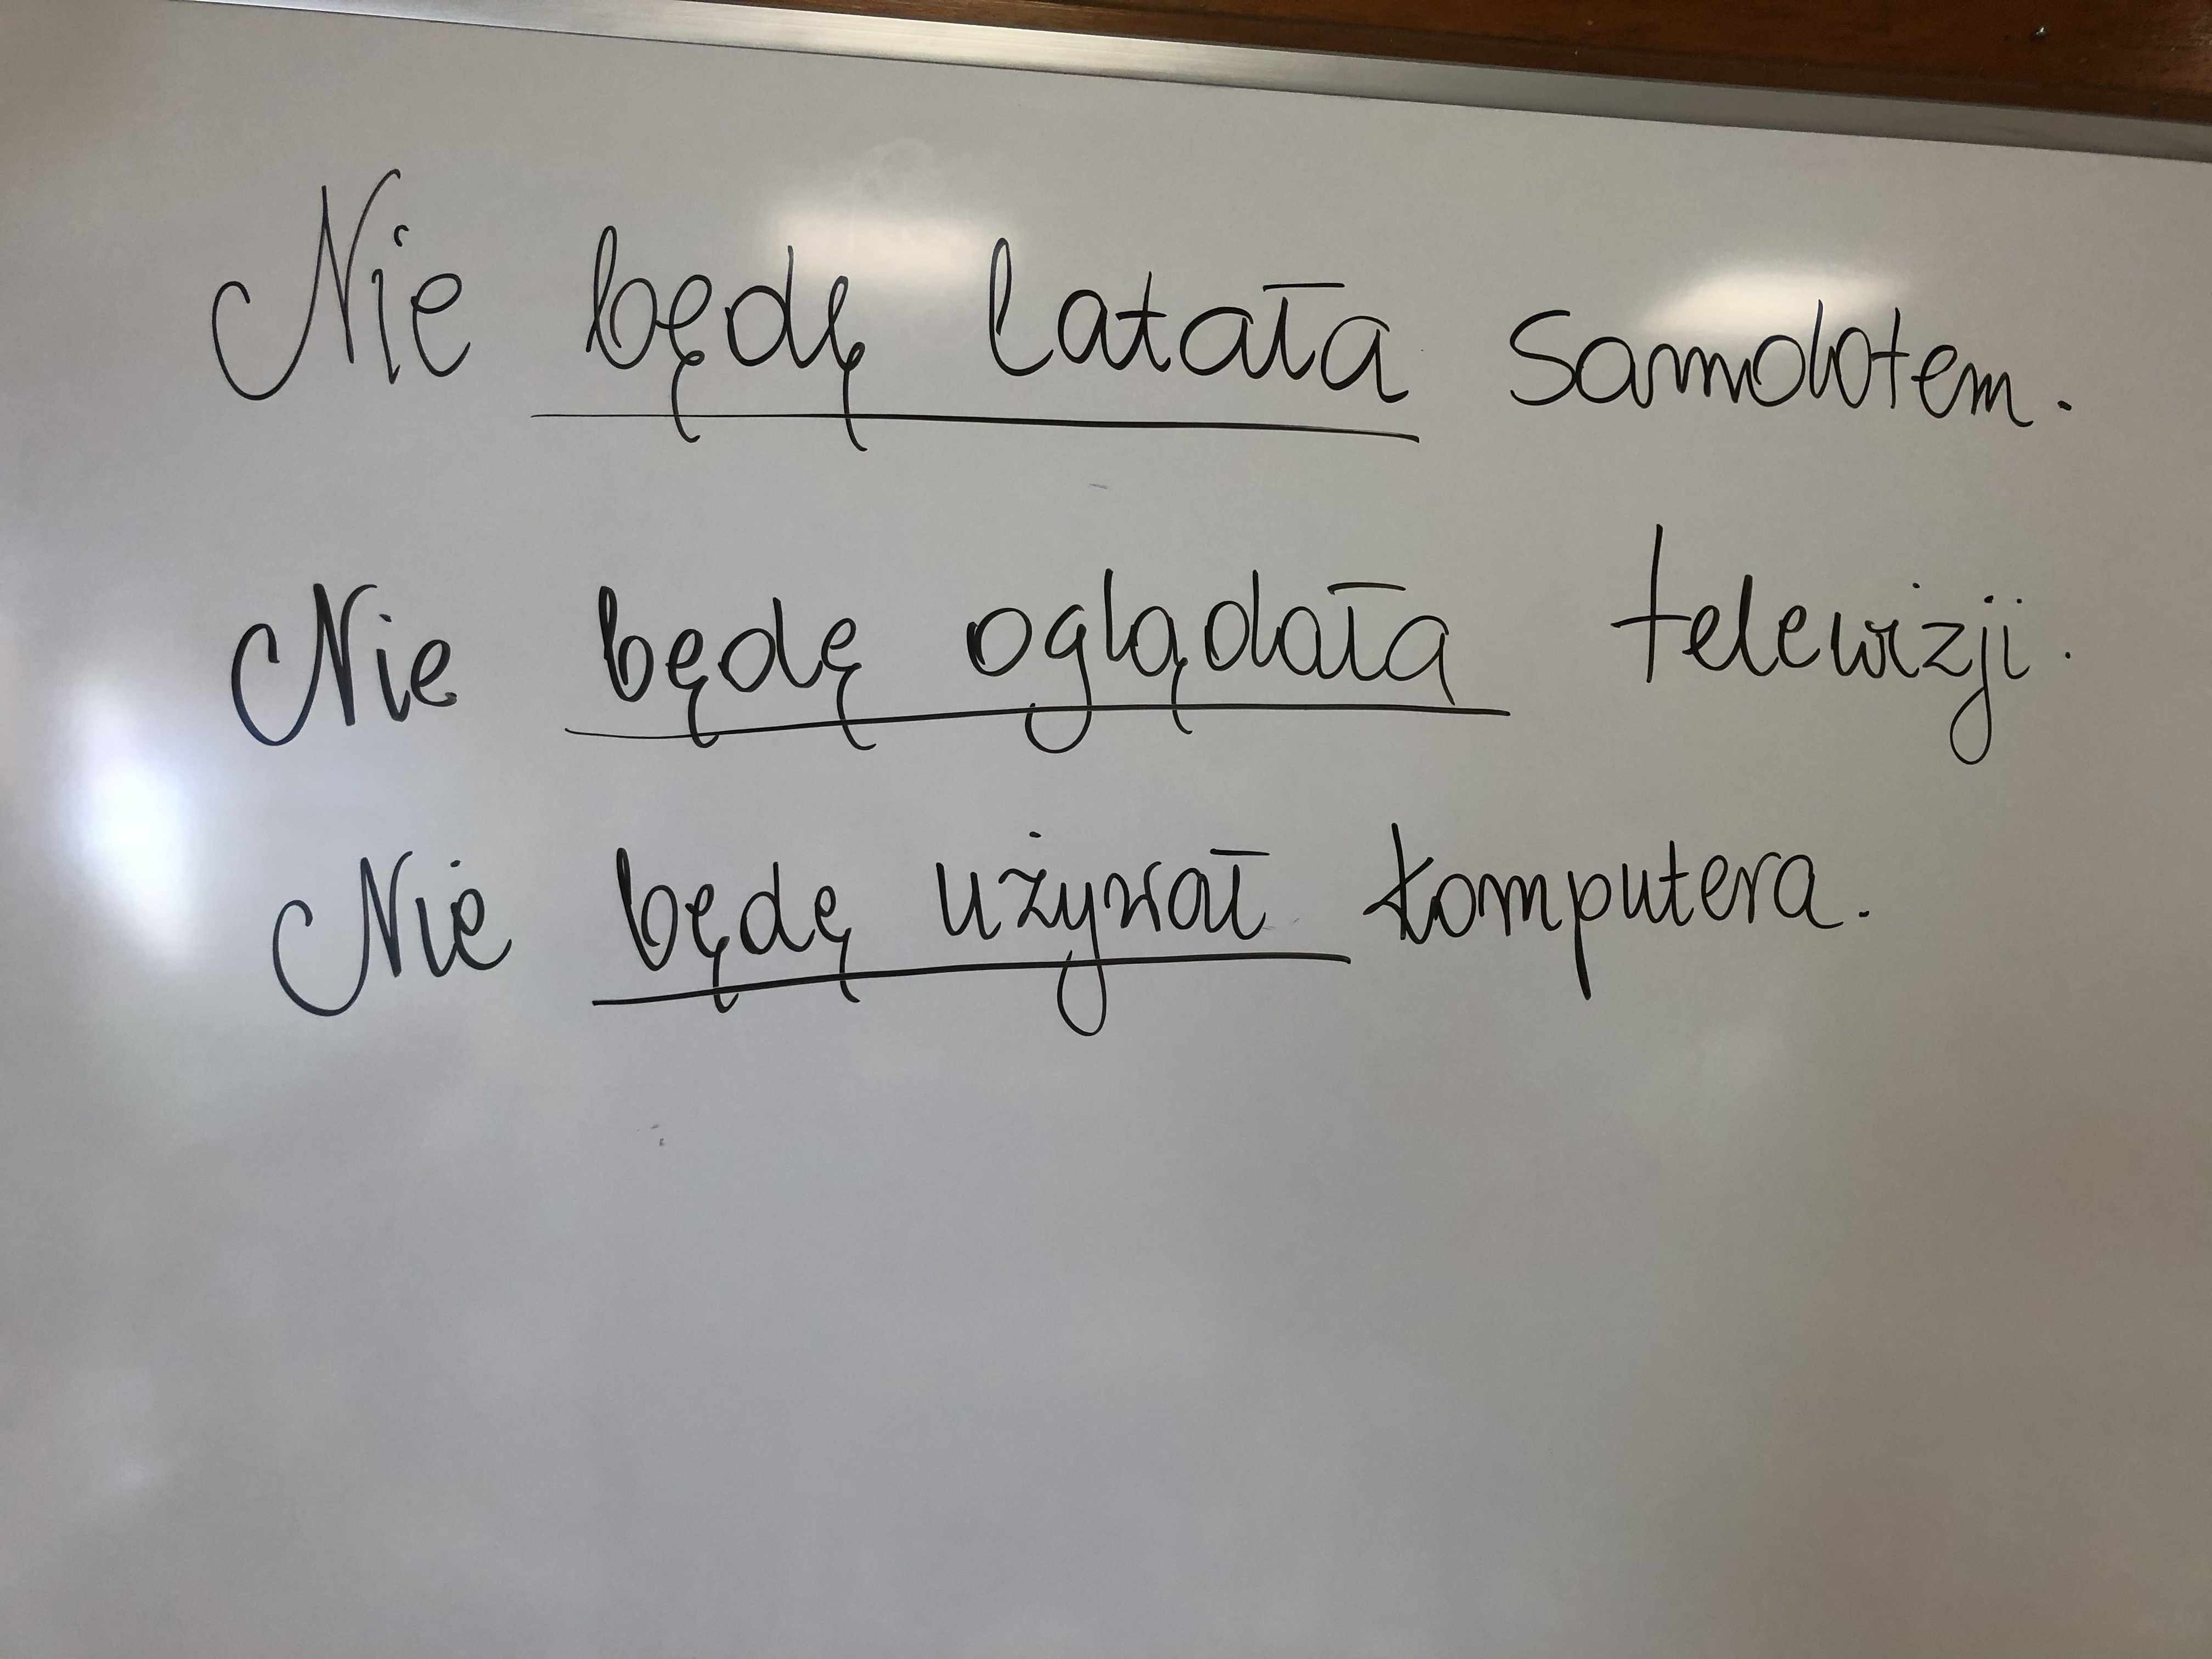 Nie będę latała samolotem.
Nie będę oglądała telewizji.
Nie będę używał komputera.